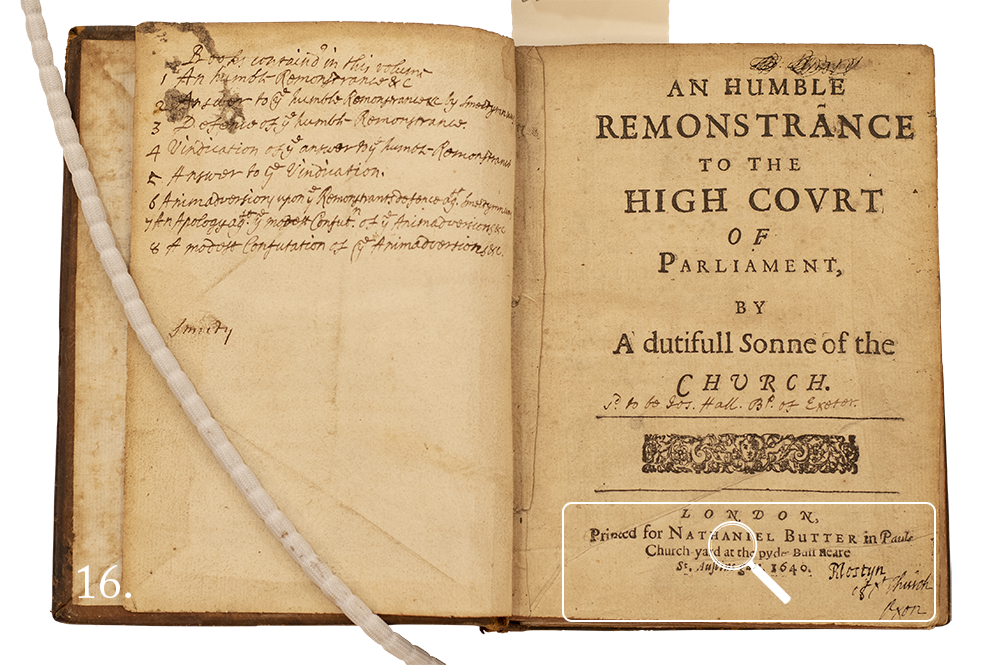 Books contain'd in this volume
1 An humble Remonstrance &c
2 Answer to yͤ humble Remonstrance &c by Smectymnuus
3 Defence of yͤ humble Remonstrance.
4 Vindication of yͤ answer to yͤ humble Remonstrance
5 Answer to yͤ Vindication.
6 Animadversions upon yͤ Remonstrants defence agᵗ. Smectymnuus
7 An Apology agᵗ. yͤ modest Confutⁿ. of yͤ Animadversions &c
8 A modest Confutation of yͤ Animadversions &c.
16.
AN HUMBLE
REMONSTRÃNCE
TO THE
HIGH COVRT
OF
PARLIAMENT,
BY
A dutifull Sonne of the
CHURCH.
Sᵈ. to be Jos. Hall. Bᵖ. of Exeter.
LONDON,
Printed for NATHANIEL BUTTER in Pauls
Church-yard at the pyde-Bull neare
St. Austins gate. 1640.
Mostyn
Church
Oxon